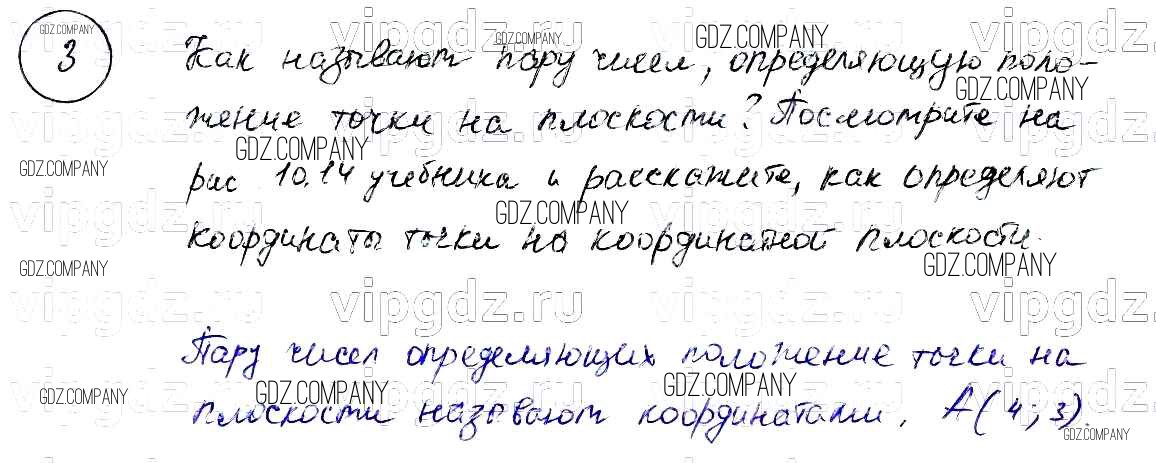 3
Как называют пару чисел, определяющую поло-
жение точки на плоскости? Посмотрите на
рис 10.14 учебника и расскажите, как определяют
координаты точки на координатной плоскости.
Пару чисел определяющих положение точки на
плоскости называют координатами. А(4;3).
GDZ.COMPANY
vipgdz.ru